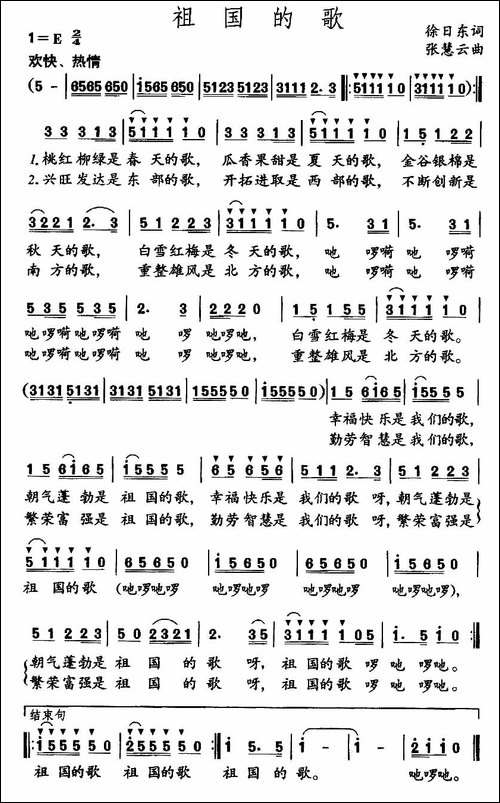 祖国的歌
1=E 2/4
徐日东词
张慧云曲
欢快、热情
(5 - | 6565 650 | i565 650 | 5123 5123 | 3111 2. 3 ‖: 51111 0 | 31111 0):|
3 3 3 1 3 | 51111 0 | 3 3 3 1 3 | 51111 0 | 1 5 1 2 2 |
1.桃红柳绿是春 天的歌, 瓜香果甜是夏 天的歌, 金谷银棉是
2.兴旺发达是东 部的歌, 开拓进取是西 部的歌, 不断创新是
3221 2. 3 | 5 1 2 2 3 | 31111 0 | 5. 3 1 | 5. 3 1 |
秋 天的歌, 白雪红梅是 冬 天的歌, 吔 啰嗬 吔 啰嗬
南 方的歌, 重整雄风是 北 方的歌, 吔 啰嗬 吔 啰嗬
535 535 | 2. 3 | 2 2 2 0 | 1 5 1 5 5 | 31111 0 |
吔啰嗬吔啰嗬 吔 啰 吔啰吔, 白雪红梅是 冬 天的歌。
吔啰嗬吔啰嗬 吔 啰 吔啰吔, 重整雄风是 北 方的歌。
(3131 5131 | 3131 5131 | 155550 | 155550 | i55550) | 1 5 6i65 | i5555 |
幸福快乐是我们的歌,
勤劳智慧是我们的歌,
1 5 6i65 | i5555 | 6 5 6 5 6 | 5111 2. | 5 1 2 2 3 |
朝气蓬 勃是 祖 国的歌, 幸福快乐是 我们的歌 呀, 朝气蓬勃是
繁荣富 强是 祖 国的歌, 勤劳智慧是 我们的歌 呀, 繁荣富强是
51111 0 | 65650 | i5650 | 65650 | i5650 |
祖 国的歌 (吔啰吔啰 吔啰吔吔 吔啰吔啰 吔啰吔啰),
5 1 2 2 3 | 5 0 2321 | 2. 3 5 | 31111 05 | i. 5 | i 0 :|
朝气蓬勃是 祖 国 的 歌 呀, 祖 国的歌 啰吔 啰吔。
繁荣富强是 祖 国 的 歌 呀, 祖 国的歌 啰吔 啰吔。
结束句
‖: i5555 50 | 25555 50 :‖ i 5. 5 | i - | i - | 2 i i 0 ‖
祖 国的歌 祖 国的歌 祖 国的 歌。 吔啰吔。